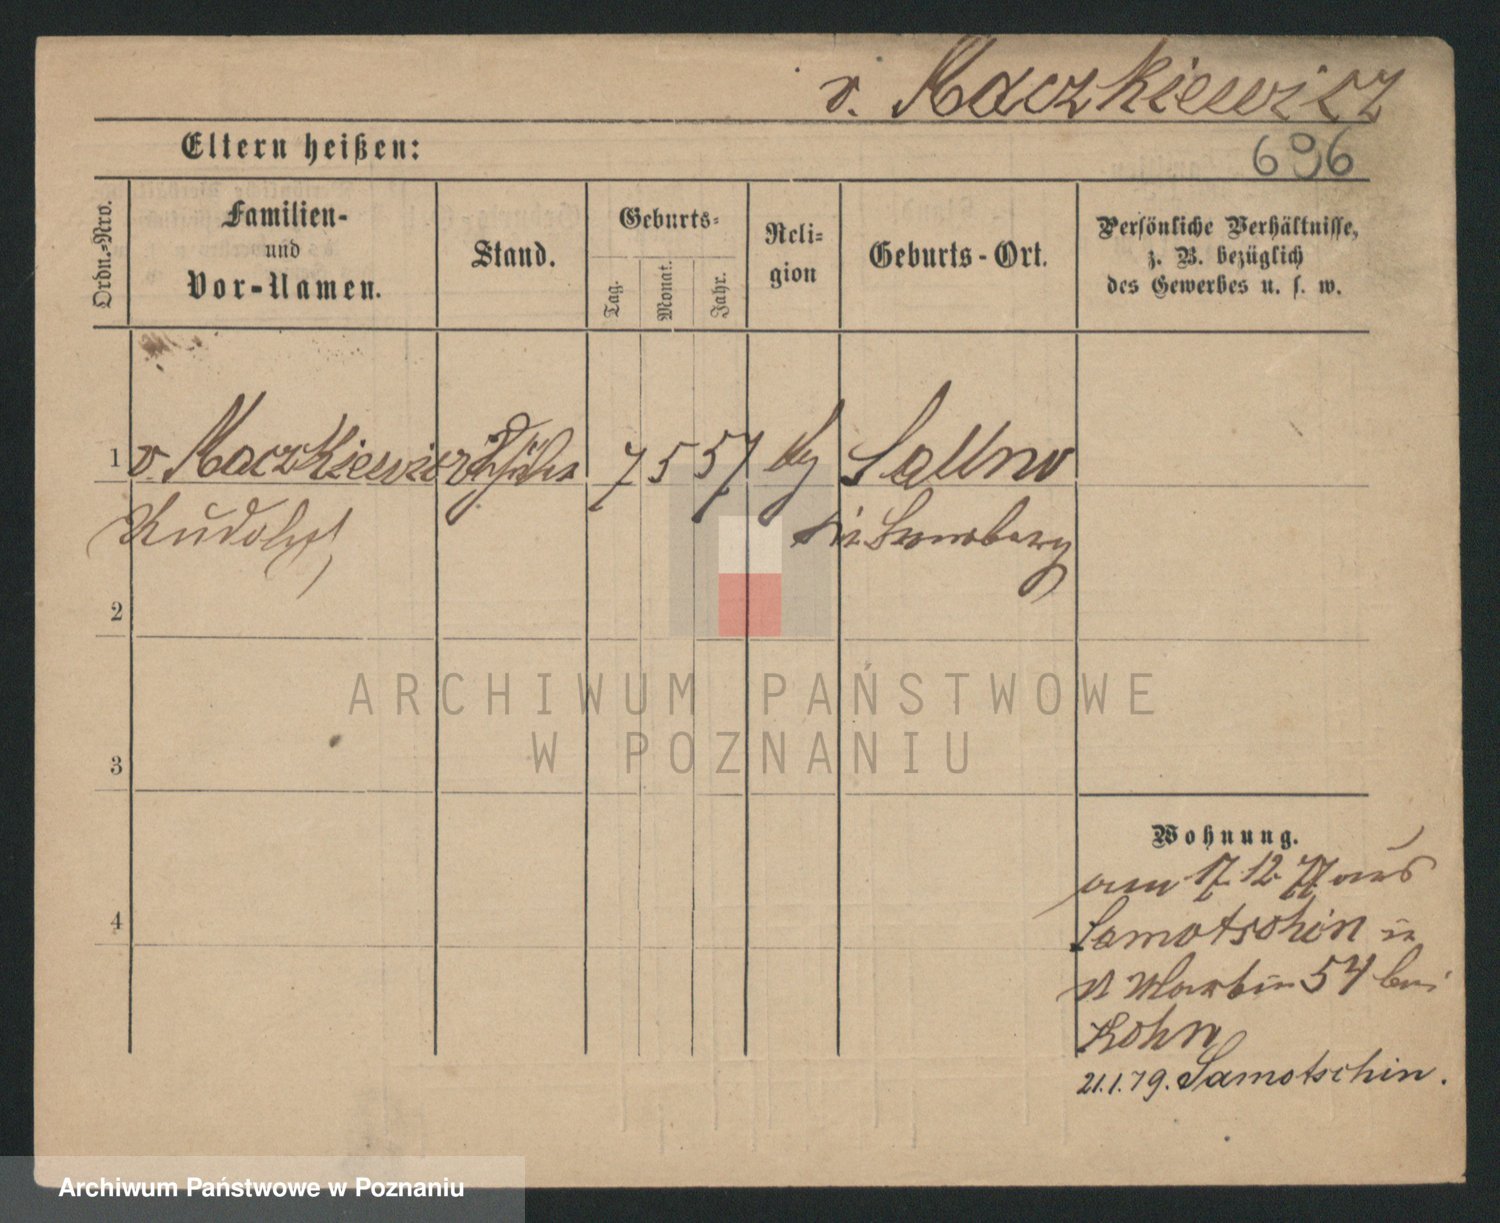 v. Maczkiewicz
Eltern heißen:
696
Ordn.-Nro.
Familien-
und
Vor-Namen.
Stand.
Geburts-
Tag.
Monat.
Jahr.
Reli-
gion
Geburts-Ort.
Persönliche Verhältnisse,
z. B. bezüglich
des Gewerbes u. s. w.
1 v. Maczkiewicz 7 5 57
Rudolph
2
3
4
Wohnung.
am 17 12 77 aus
Samotschin in
St Martin 54 bei
Kohn
21.1.79. Samotschin.
ARCHIWUM PAŃSTWOWE
W POZNANIU
Archiwum Państwowe w Poznaniu